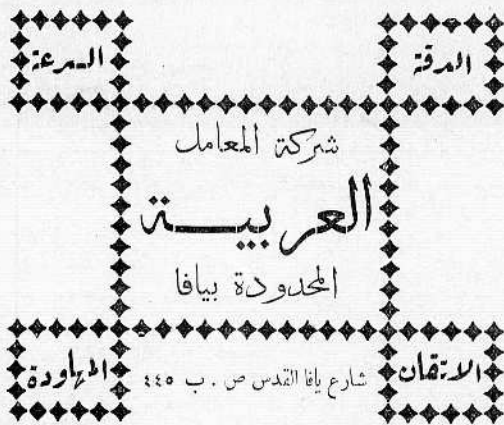 الدقة
السرعة
شركة المعامل
العربية
المحدودة بيافا
الاتقان
شارع يافا القدس ص . ب ٤٤٥
المهاودة